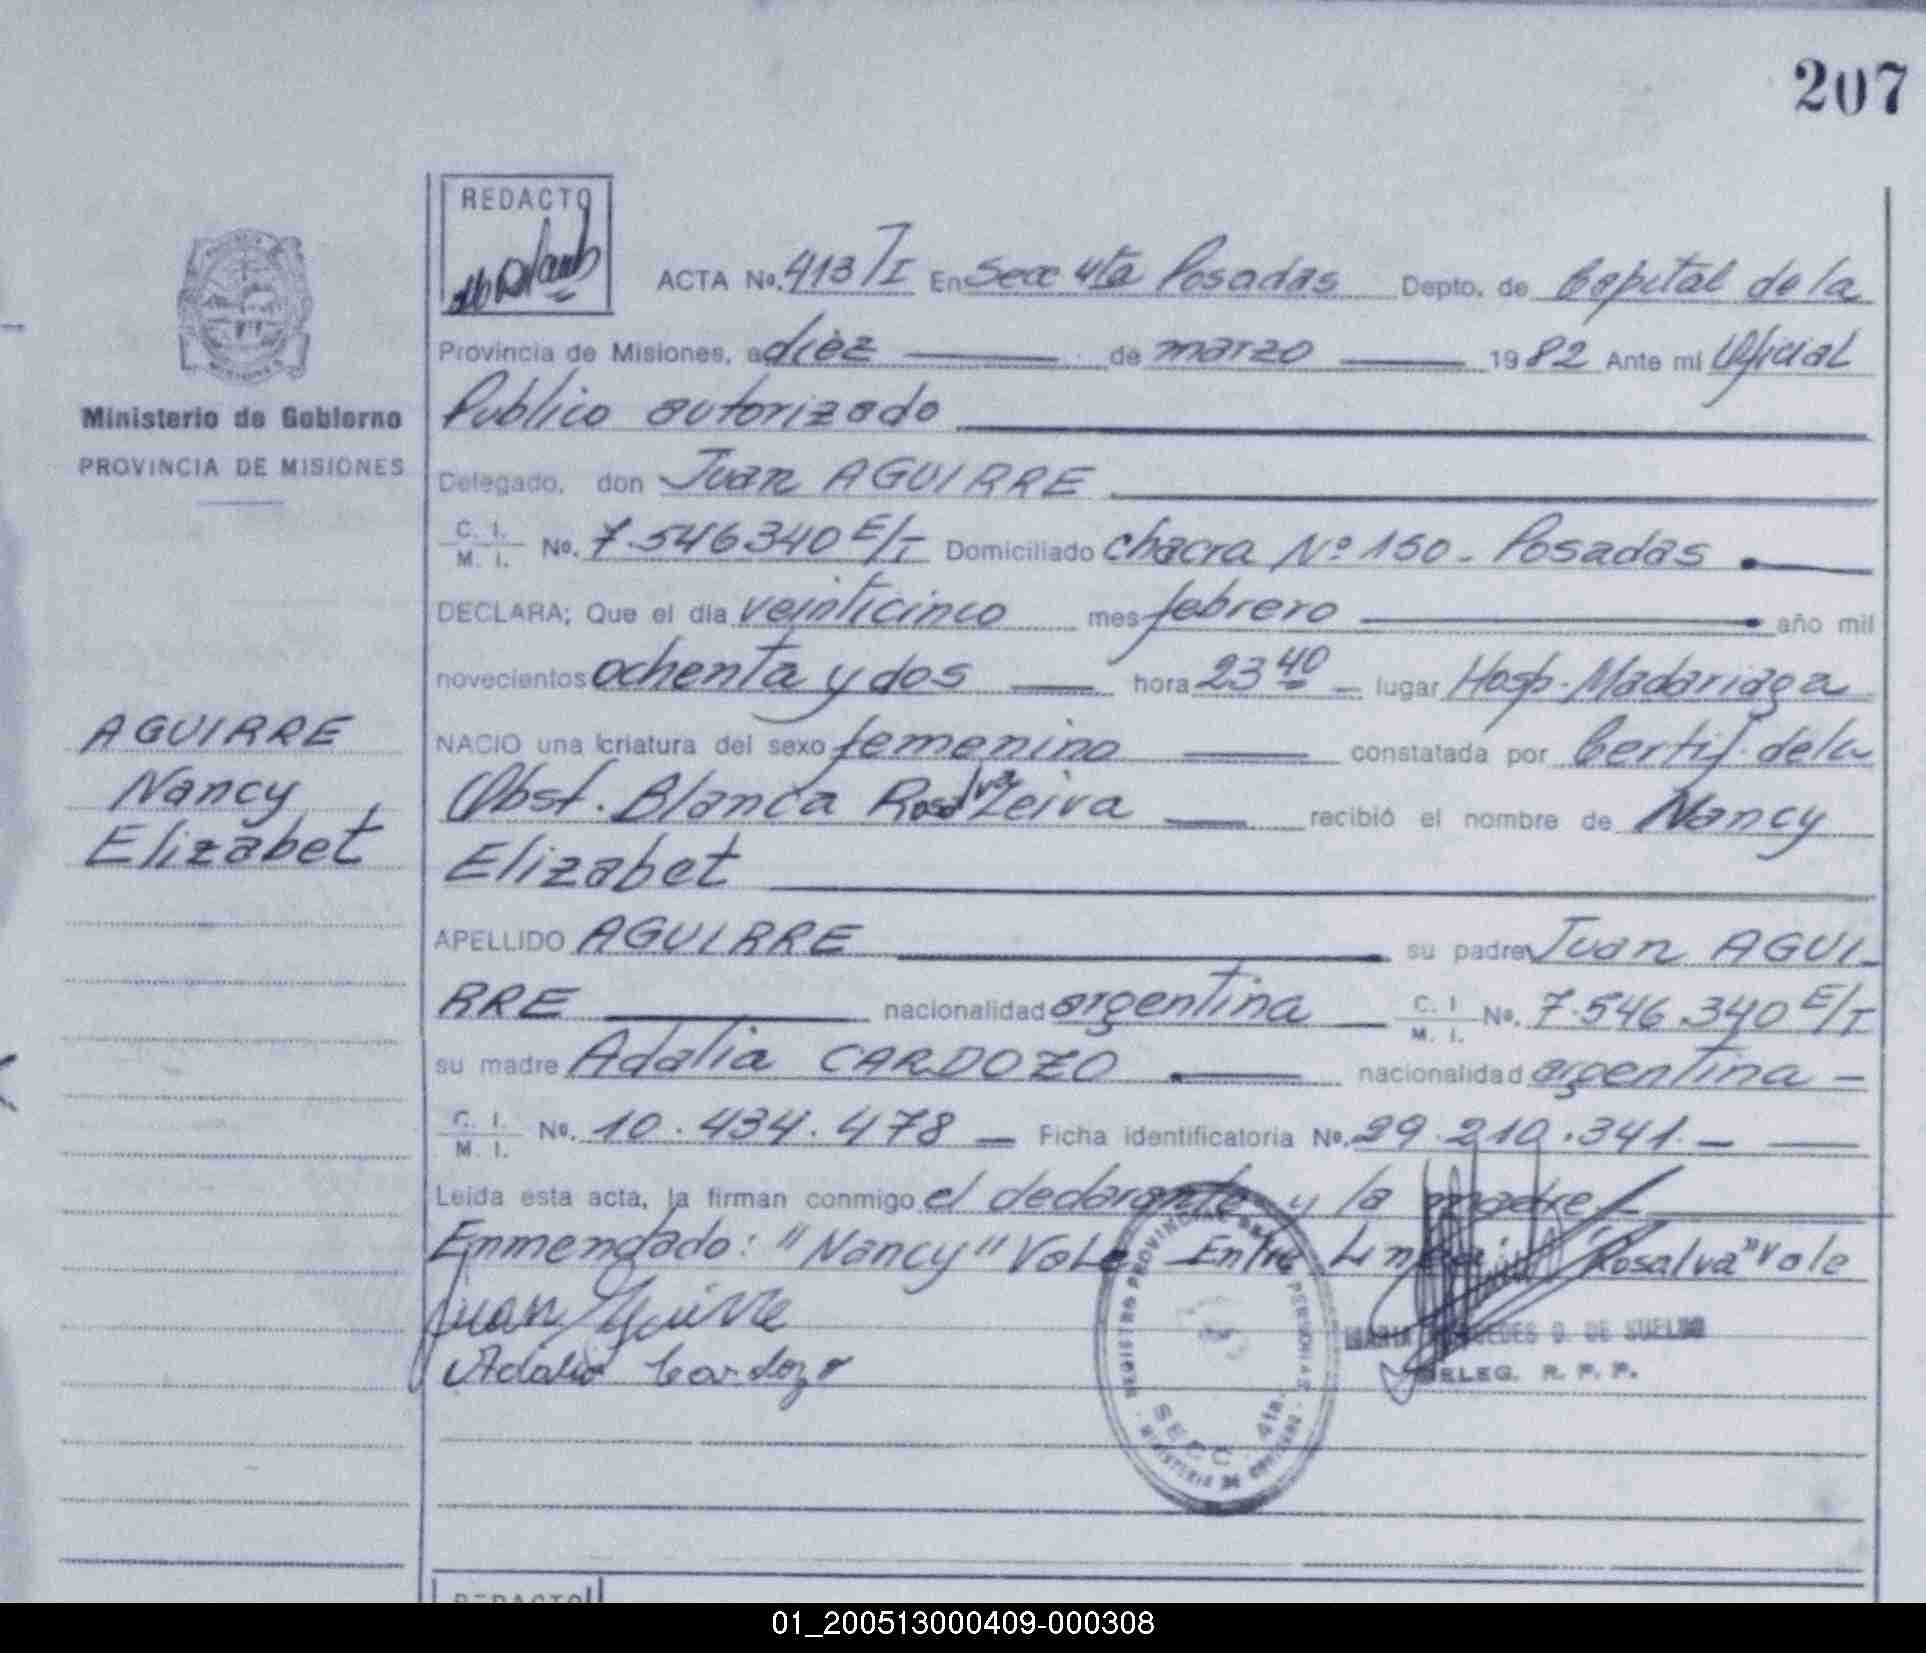 207
REDACTO
ACTA No. 413/I En Secc 4ta Posadas Depto. de Capital de la
Provincia de Misiones, a diez de marzo 1982 Ante mi Oficial
Ministerio de Gobierno
PROVINCIA DE MISIONES
Publico autorizado
Delegado, don Juan AGUIRRE
C. I. M. I. No. 7.546340 E/I Domiciliado chacra Nº 150 - Posadas
DECLARA; Que el día veinticinco mes febrero año mil
novecientos ochenta y dos hora 23 40 lugar Hosp. Madariaga
NACIO una criatura del sexo femenino constatada por Certif. de la
Obst. Blanca Rosalva Leiva recibió el nombre de Nancy
Elizabet
AGUIRRE
Nancy
Elizabet
APELLIDO AGUIRRE su padre Juan AGUI-
RRE nacionalidad argentina C. I. M. I. No. 7.546.340 E/I
su madre Adalia CARDOZO nacionalidad argentina
C. I. M. I. No. 10.434.478 Ficha identificatoria No. 29.210.341.
Leída esta acta, la firman conmigo el declarante y la madre
Enmendado: "Nancy" Vale. Entre Linea: "Rosalva" Vale
Juan Aguirre
Adalia Cardozo
REGISTRO PROVINCIAL DE LAS PERSONAS
SECC. 4ta.
MINISTERIO DE GOBIERNO
MARIA MERCEDES D. DE SUELDO
DELEG. R. P. P.
REDACTO
01_200513000409-000308